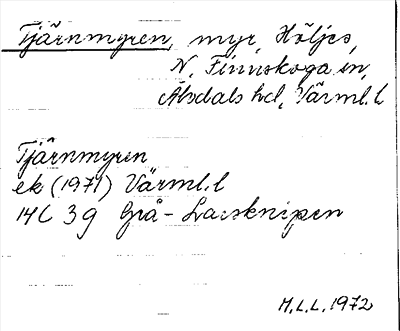 Tjärnmyren, myr, Höljes,
N. Finnskoga sn,
Älvdals hd, Värml. l
Tjärnmyren
ek (1971) Värml. l
14C 3g Grå - Lavsknipen
M.L.L. 1972